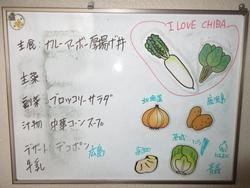 I LOVE CHIBA
主食 カレーマーボー厚揚げ丼
主菜
副菜 ブロッコリーサラダ
汁物 中華コーンスープ
デザート デコポン 広島
牛乳
北海道
鹿児島
茨城
青森